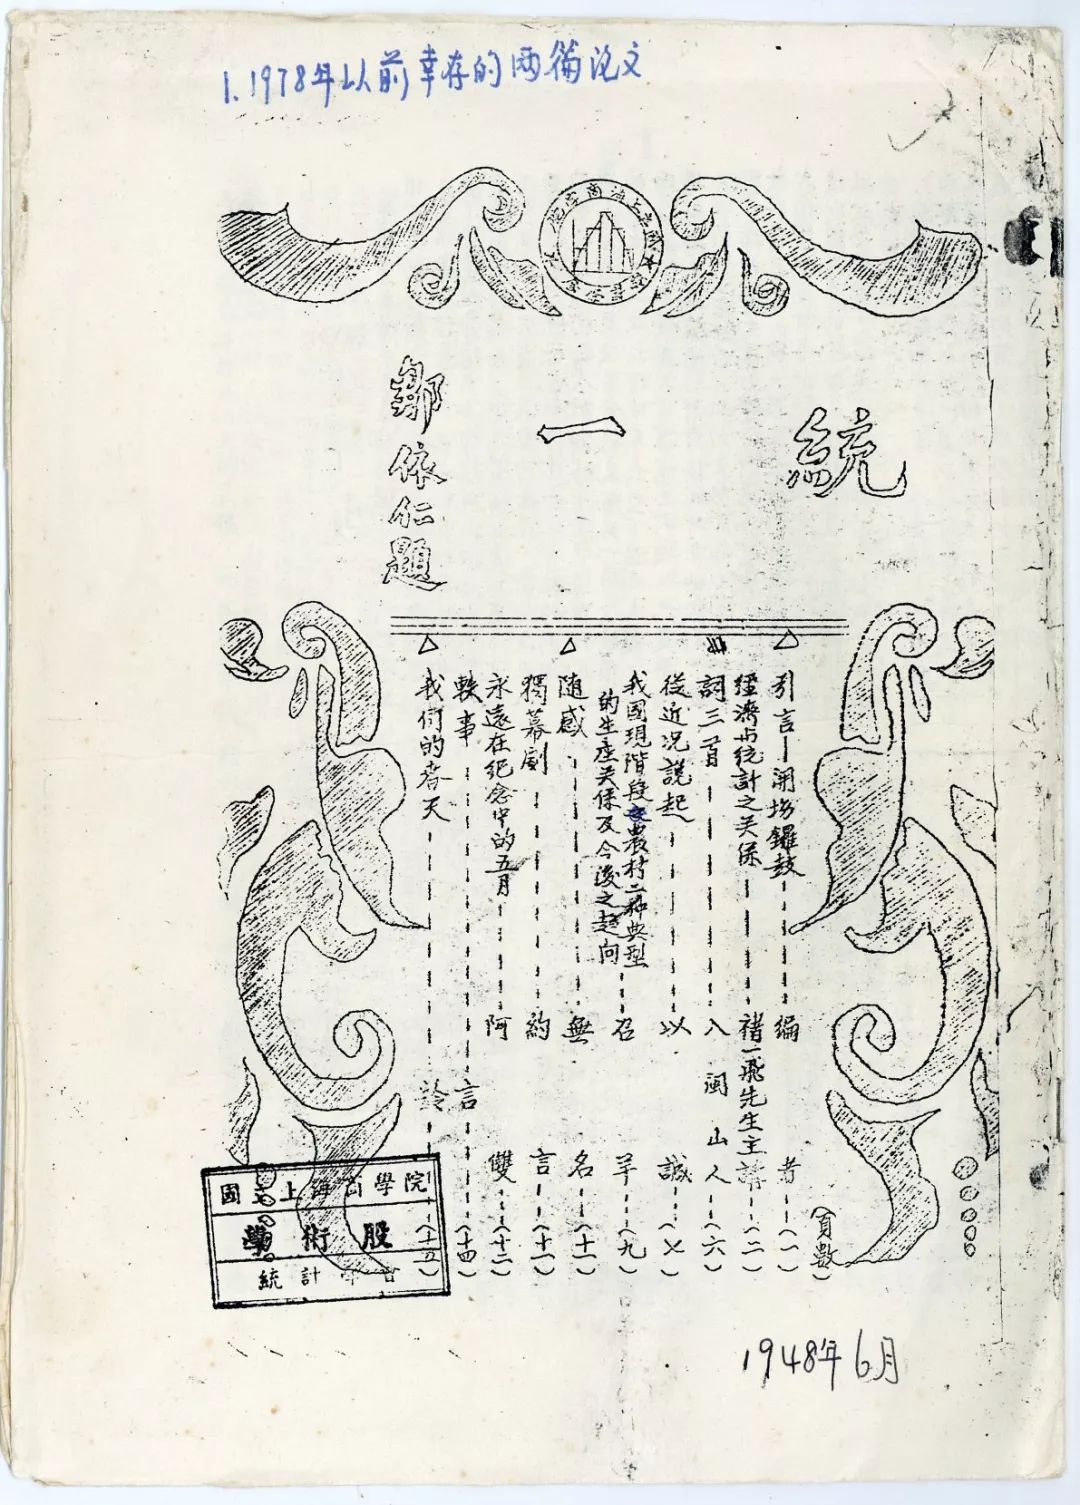 1.1978年以前幸存的两篇论文
統一
鄒依仁題
(頁數)
引言—開場鑼鼓 編者 (一)
經濟与統計之关係 褚一飛先生主講 (二)
詞三首 入閩山人 (六)
從近况說起 以誠 (七)
我國現階段農村二种典型
的生産关係及今後之趋向 召羊 (九)
随感 無名 (十一)
獨幕劇 約言 (十一)
永遠在紀念中的五月 阿雙 (十二)
軼事 言 (十四)
我们的春天 (十五)
國立上海商學院
學術股
統計學會
1948年6月